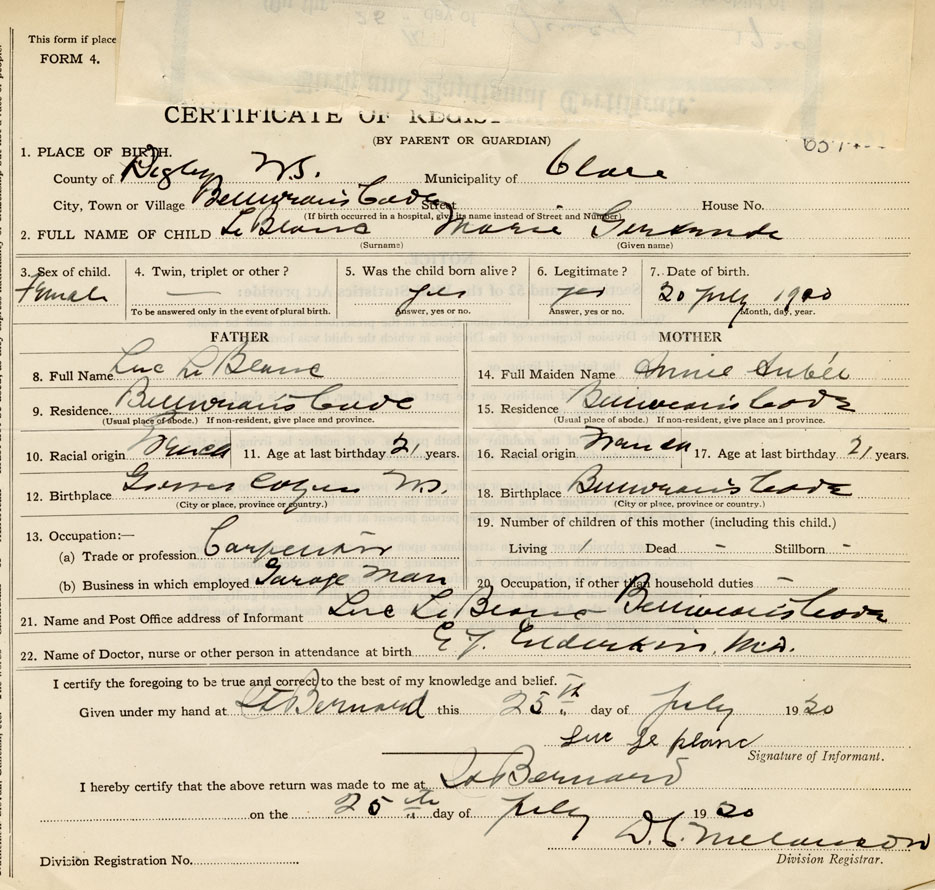 This form if place
FORM 4.
CERTIFICATE OF REGIS
(BY PARENT OR GUARDIAN)
1. PLACE OF BIRTH.
County of Digby N.S. Municipality of Clare
City, Town or Village Belliveau's Cove Street House No.
(If birth occurred in a hospital, give its name instead of Street and Number)
2. FULL NAME OF CHILD LeBlanc Marie
(Surname) (Given name)
3. Sex of child. 4. Twin, triplet or other? 5. Was the child born alive? 6. Legitimate? 7. Date of birth.
Female — yes yes 20 July 1920
To be answered only in the event of plural birth. Answer, yes or no. Answer, yes or no. Month, day, year.
FATHER MOTHER
8. Full Name Luc LeBlanc 14. Full Maiden Name Annie
9. Residence. Belliveau's Cove 15. Residence Belliveau's Cove
(Usual place of abode.) If non-resident, give place and province. (Usual place of abode.) If non-resident, give place and province.
10. Racial origin French 11. Age at last birthday 21 years. 16. Racial origin French 17. Age at last birthday 21 years.
12. Birthplace Grosses Coques N.S. 18. Birthplace Belliveau's Cove
(City or place, province or country.) (City or place, province or country.)
13. Occupation:— 19. Number of children of this mother (including this child.)
(a) Trade or profession Carpenter Living 1 Dead - Stillborn -
(b) Business in which employed Garage Man 20. Occupation, if other than household duties -
21. Name and Post Office address of Informant Luc LeBlanc Belliveau's Cove
22. Name of Doctor, nurse or other person in attendance at birth Enderkin, M.D.
I certify the foregoing to be true and correct to the best of my knowledge and belief.
Given under my hand at St Bernard this 25th day of July 1920
Luc le blanc
Signature of Informant.
I hereby certify that the above return was made to me at St Bernard
on the 25th day of July 1920
Melanson
Division Registration No. Division Registrar.